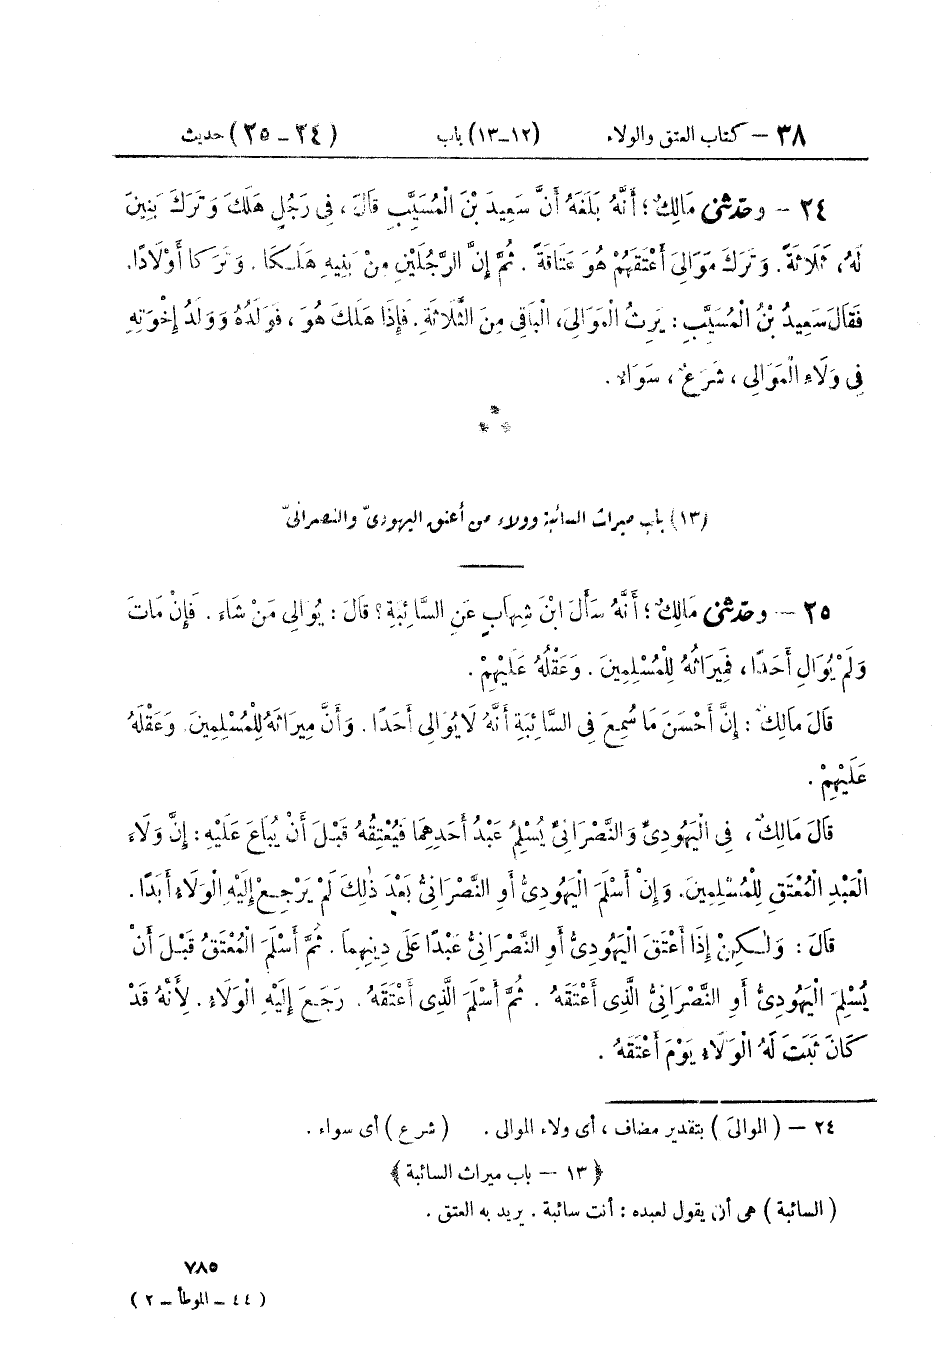 ٣٨ – كتاب العتق والولاء (١٢–١٣) باب (٢٤ – ٢٥) حديث
٢٤ – وحدّثنى مَالِكٌ؛ أَنَّهُ بَلَغَهُ أَنَّ سَعِيدَ بْنَ الْمُسَيَّبِ قَالَ، فِى رَجُلٍ هَلَكَ وَتَرَكَ بَنِينَ
لَهُ، ثَلَاثَةً. وَتَرَكَ مَوَالِىَ أَعْتَقَهُمْ هُوَ عَتَاقَةً. ثُمَّ إِنَّ الرَّجُلَيْنِ مِنْ بَنِيهِ هَلَكَا. وَتَرَكَا أَوْلَادًا.
فَقَالَ سَعِيدُ بْنُ الْمُسَيَّبِ: يَرِثُ الْمَوَالِىَ، الْبَاقِى مِنَ الثَّلَاثَةِ. فَإِذَا هَلَكَ هُوَ، فَوَلَدُهُ وَوَلَدُ إِخْوَتِهِ
فِى وَلَاءِ الْمَوَالِى، شَرَعٌ، سَوَاءٌ.
***
(١٣) باب ميراث السائبة وولاء من أعتق اليهودىّ والنصرانىّ
٢٥ – وحدّثنى مَالِكٌ؛ أَنَّهُ سَأَلَ ابْنَ شِهَابٍ عَنِ السَّائِبَةِ؟ قَالَ: يُوَالِى مَنْ شَاءَ. فَإِنْ مَاتَ
وَلَمْ يُوَالِ أَحَدًا، فَمِيرَاثُهُ لِلْمُسْلِمِينَ. وَعَقْلُهُ عَلَيْهِمْ.
قَالَ مَالِكٌ: إِنَّ أَحْسَنَ مَا سُمِعَ فِى السَّائِبَةِ أَنَّهُ لَا يُوَالِى أَحَدًا. وَأَنَّ مِيرَاثَهُ لِلْمُسْلِمِينَ. وَعَقْلَهُ
عَلَيْهِمْ.
قَالَ مَالِكٌ، فِى الْيَهُودِىِّ وَالنَّصْرَانِىِّ يُسْلِمُ عَبْدُ أَحَدِهِمَا فَيُعْتِقُهُ قَبْلَ أَنْ يُبَاعَ عَلَيْهِ: إِنَّ وَلَاءَ
الْعَبْدِ الْمُعْتَقِ لِلْمُسْلِمِينَ. وَإِنْ أَسْلَمَ الْيَهُودِىُّ أَوِ النَّصْرَانِىُّ بَعْدَ ذٰلِكَ لَمْ يَرْجِعْ إِلَيْهِ الْوَلَاءُ أَبَدًا.
قَالَ: وَلٰكِنْ إِذَا أَعْتَقَ الْيَهُودِىُّ أَوِ النَّصْرَانِىُّ عَبْدًا عَلَى دِينِهِمَا. ثُمَّ أَسْلَمَ الْمُعْتَقُ قَبْلَ أَنْ
يُسْلِمَ الْيَهُودِىُّ أَوِ النَّصْرَانِىُّ الَّذِى أَعْتَقَهُ. ثُمَّ أَسْلَمَ الَّذِى أَعْتَقَهُ. رَجَعَ إِلَيْهِ الْوَلَاءُ. لِأَنَّهُ قَدْ
كَانَ ثَبَتَ لَهُ الْوَلَاءُ يَوْمَ أَعْتَقَهُ.
٢٤ – (الموالىَ) بتقدير مضاف، أى ولاء الموالى. (شرع) أى سواء.
﴿١٣ – باب ميراث السائبة﴾
(السائبة) هى أن يقول لعبده: أنت سائبة. يريد به العتق.
٧٨٥
(٤٤ – الموطأ – ٢)